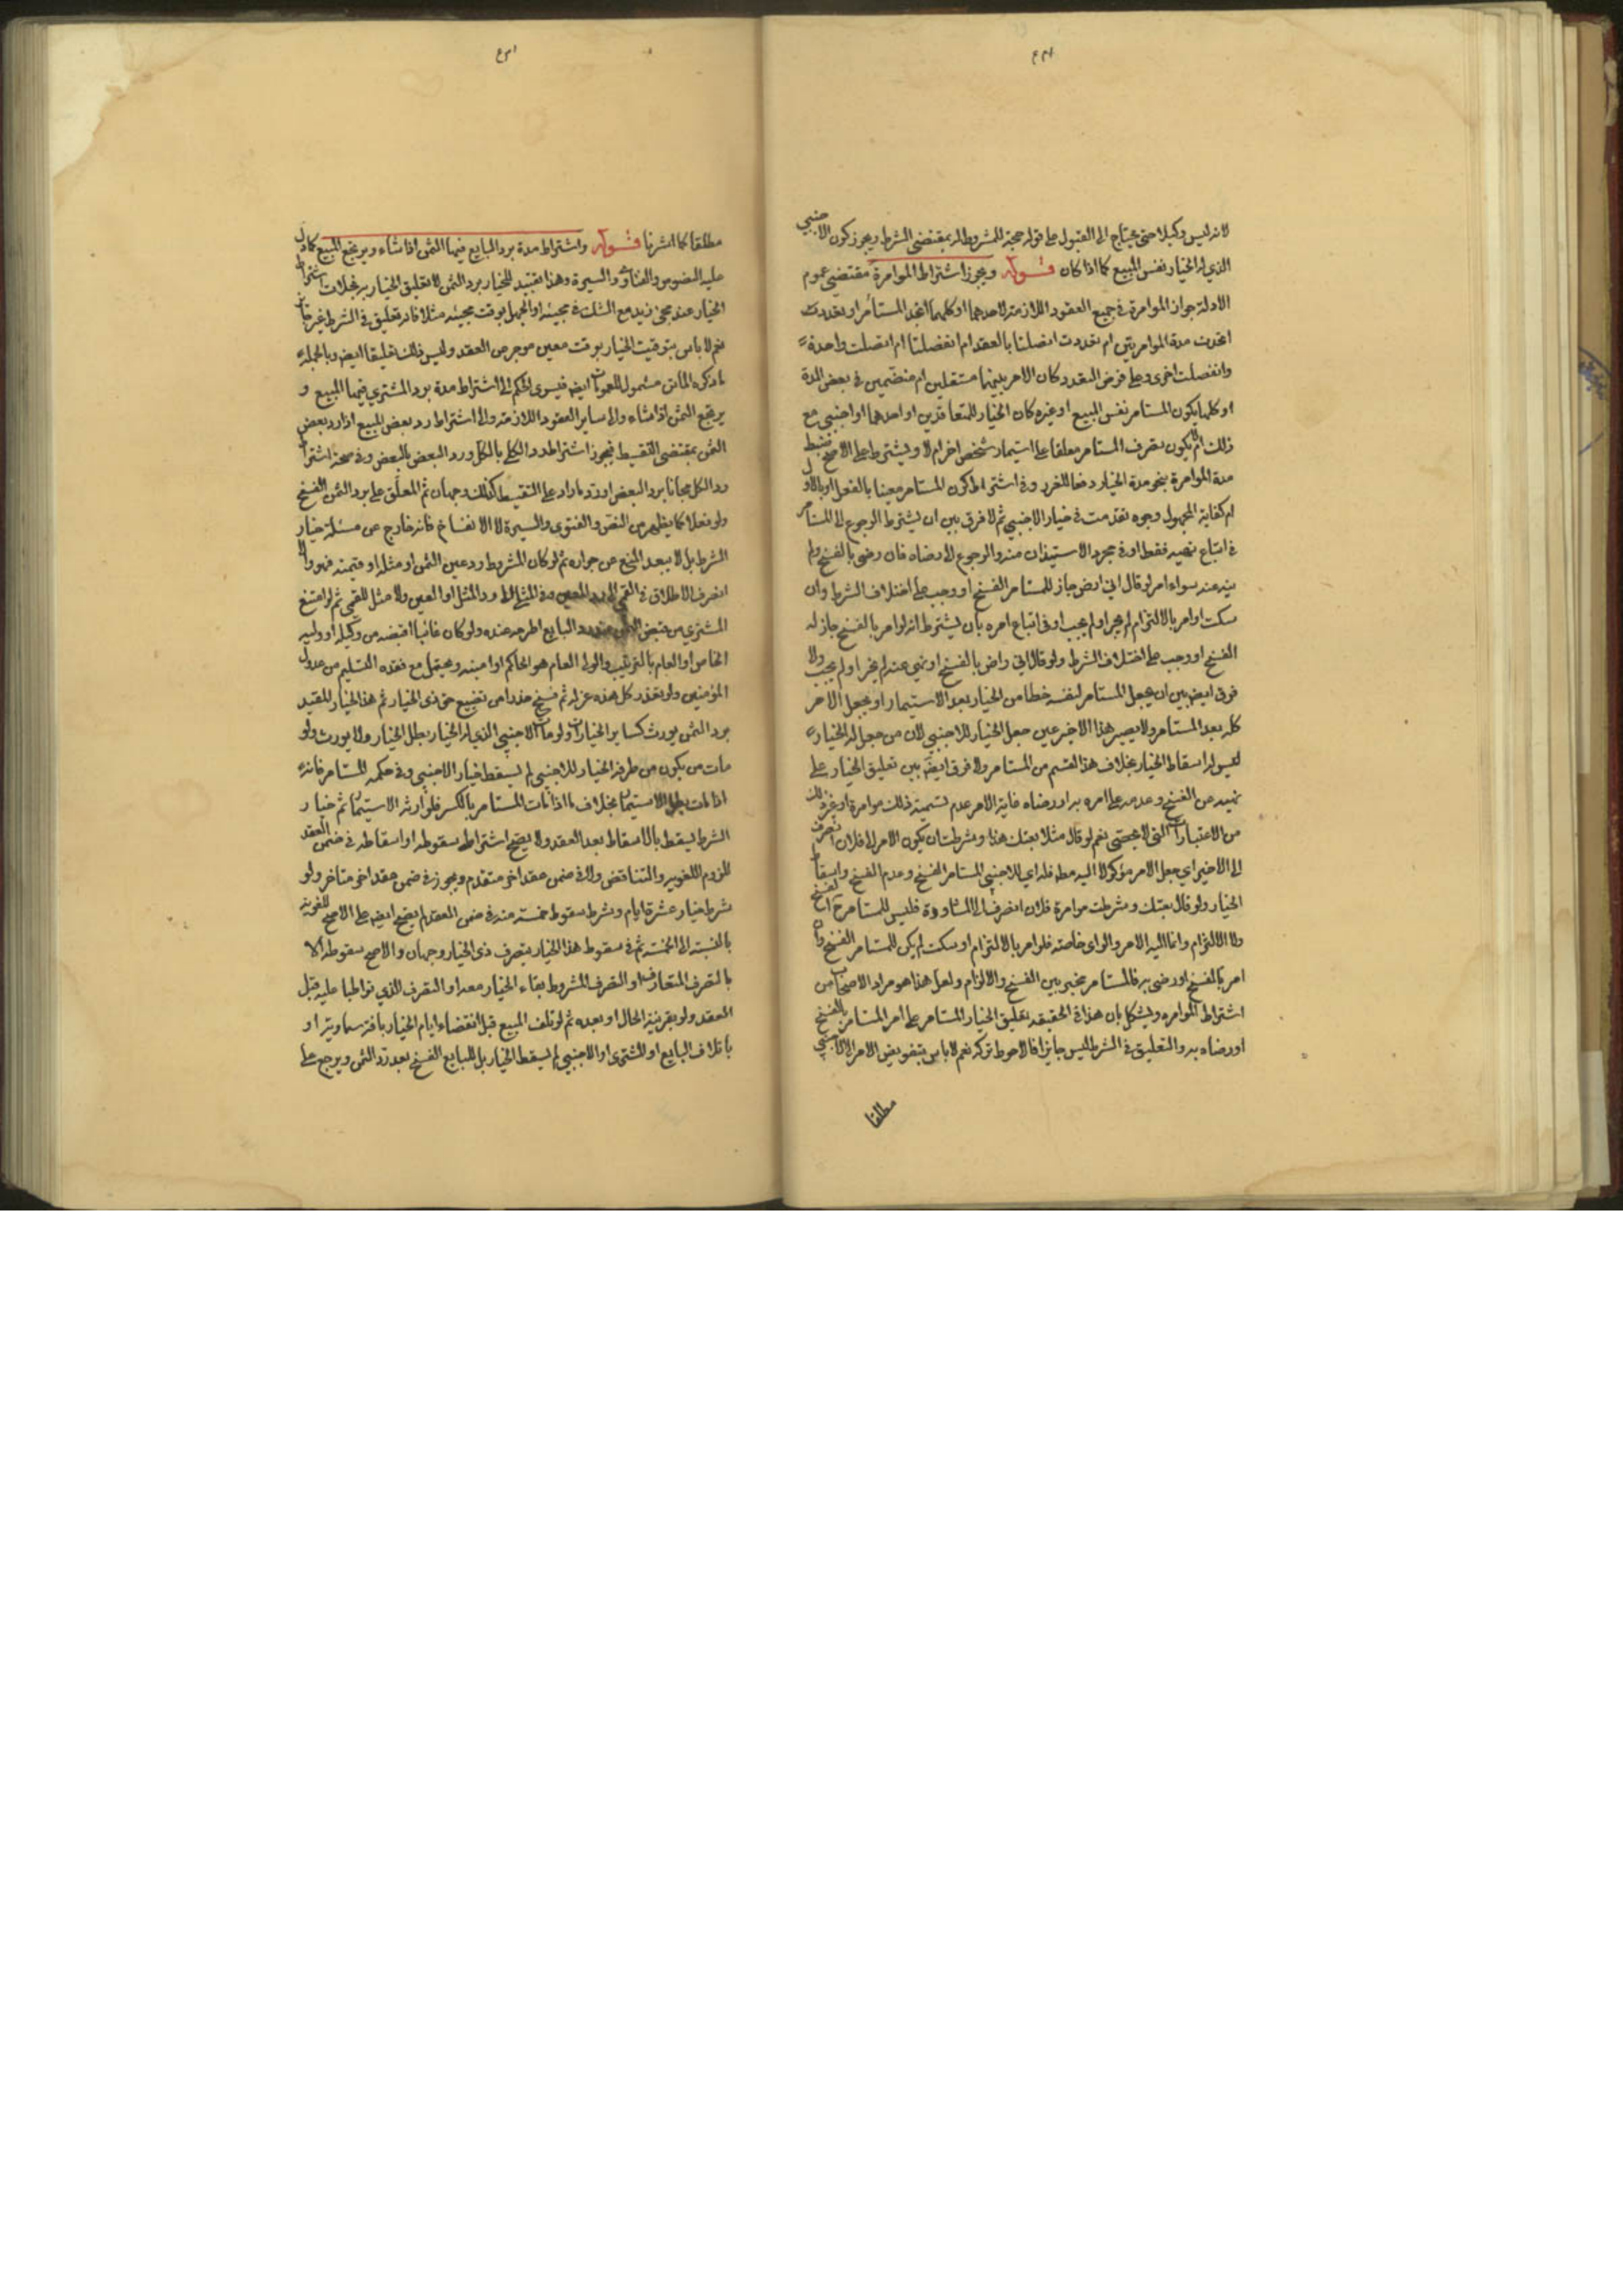 لانه ليس وكيلا حتى يحتاج الى القبول على قوله حجة للمشروط له بمقتضى الشرط ويجوز كون الاجنبي
الذي له الخيار نفس المبيع كما اذا كان قوله ويجوز اشتراط الموامرة مقتضى عموم
الادلة جواز الموامرة في جميع العقود اللازمة لاحدهما او كليهما اتحد المستامر او تعددت
اتحدت مدة الموامرتين ام تعددت اتصلتا بالعقد ام انفصلتا ام اتصلت واحدة
وانفصلت اخرى وعلى فرض التعدد كان الامر بينهما مستقلين ام منضمين في بعض المدة
او كلها يكون المستامر نفس المبيع او غيره كان الخيار للمتعاقدين او احدهما او اجنبي مع
ذلك ام يكون تصرف المستامر معلقا على استيمار شخص اخر ام لا ويشترط على الاصح ضبط
مدة الموامرة بنحو مدة الخيار دفعا للغرر وفي اشتراط كون المستامر معينا بالفعل او بالاول
ام كفاية المجهول وجوه تقدمت في خيار الاجنبي ثم لا فرق بين ان يشترط الرجوع الى المستامر
في اتباع نهيه فقط او في مجرد الاستيذان منه والرجوع الى رضاه فان رضى بالفسخ ولم
ينه عنه سواء امر لو قال اني ارض جاز للمستامر الفسخ او وجب على اختلاف الشرط وان
سكت او امر بالالتزام لم يجز او لم يجب او في اتباع امره بان يشترط انه لو امر بالفسخ جاز له
الفسخ او وجب على اختلاف الشرط ولو قال اني راض بالفسخ او نهى عنه لم يجز او لم يجب ولا
فرق ايضا بين ان يجعل المستامر لنفسه خطا من الخيار بعد الاستيمار او يجعل الامر
كله بعد المستامر ولا يصير هذا الاخير عين جعل الخيار للاجنبي لان من جعل له الخيار
ليس له اسقاط الخيار بخلاف هذا القسم من المستامر ولا فرق ايضا بين تعليق الخيار على
نهيه عن الفسخ وعدمه على امره به او رضاه غاية الامر عدم تسمية ذلك موامرة او غير ذلك
من الاعتبارات التي لا تحصى نعم لو قال مثلا بعتك هذا وشرطت ان يكون الامر الى فلان انصرف
الى الاخير اي جعل الامر موكولا اليه مطه فله اي للاجنبي المستامر الفسخ وعدم الفسخ واسقاط
الخيار ولو قال بعتك وشرطت موامرة فلان انصرف الى المشاورة فليس للمستامر ح الفسخ
ولا الالتزام وانما اليه الامر والراي خاصة فلو امر بالالتزام او سكت لم يكن للمستامر الفسخ وان
امر بالفسخ او رضى به فالمستامر مخير بين الفسخ والالزام ولعل هذا هو مراد الاصحاب من
اشتراط الموامره ويشكل بان هذا في الحقيقه تعليق الخيار المستامر على امر المستامر بالفسخ
او رضاه به والتعليق في الشرط ليس جايزا فالاحوط تركه نعم لا باس بتفويض الامر الى الاجنبي
مطلقا
مطلقا كما اشرنا قوله واشتراط مدة يرد البايع فيها الثمن اذا شاء ويرتجع المبيع كما دل
عليه النصوص والفتاوى والسيرة وهذا تقييد للخيار برد الثمن لا تعليق الخيار به بخلاف اشتراط
الخيار عند مجئ زيد مع الشك في مجيئه او الجهل بوقت مجيئه مثلا فانه تعليق في الشرط غير جايز
نعم لا باس بتوقيت الخيار بوقت معين موجر من العقد وليس ذلك تعليقا ايضا وبالجملة
ما ذكره الماتن مشمول للعمومات ايضا فيسرى الحكم الى اشتراط مدة يرد المشتري فيها المبيع و
يرتجع الثمن اذا شاء والى ساير العقود اللازمة والى اشتراط رد بعض المبيع اذا رد بعض
الثمن بمقتضى التقسيط فيجوز اشتراط رد الكل بالكل ورد البعض بالبعض وفي صحة اشتراط
رد الكل مجانا برد البعض او رد ما زاد على التقسيط كذلك وجهان ثم المعلق على رد الثمن الفسخ
ولو فعلا كما يظهر من النص والفتوى والسيرة لا الانفساخ فانه خارج عن مسئلة خيار
الشرط بل لا يبعد المنع عن جوازه ثم لو كان المشروط رد عين الثمن او مثله او قيمته فهو والا
انصرف الاطلاق في القيمي الى رد العين وفي المثلي الى رد المثل او العين ولا مثل للقيمي ثم لو امتنع
المشتري من قبض الثمن رد البايع اطرحه عنده ولو كان غائبا اقبضه من وكيله او وليه
الخاص او العام بالترتيب والولي العام هو الحاكم او امينه ويحتمل مع فقده التسليم من عدول
المؤمنين ولو تعذر كل هذه عزله ثم فسخ حذرا من تضييع حق ذى الخيار ثم هذا الخيار المقيد
برد الثمن يورث كساير الخيارات ولو مات الاجنبي الذي له الخيار بطل الخيار ولا يورث ولو
مات من يكون من طرفه الخيار للاجنبي لم يسقط خيار الاجنبي وفي حكمه المستامر فانه
اذا مات بطل الاستيمار بخلاف ما اذا مات المستامر بالكسر فلوارثه الاستيمار ثم خيار
الشرط يسقط بالاسقاط بعد العقد ولا يصح اشتراط سقوطه او اسقاطه في ضمن العقد
للزوم اللغويه والتناقض ولا في ضمن عقد اخر متقدم ويجوز في ضمن عقد اخر متاخر ولو
شرط خيار عشرة ايام وشرط سقوط خمسة منه في ضمن العقد لم يصح ايضا على الاصح للغوية
بالنسبة الى الخمسة ثم في سقوط هذا الخيار بتصرف ذى الخيار وجهان والاصح سقوطه الا
بالتصرف المتعارف او التصرف المشروط بقاء الخيار معه او التصرف الذي تواطيا عليه قبل
العقد ولو بقرينة الحال او بعده ثم لو تلف المبيع قبل انقضاء ايام الخيار بافة سماوية او
باتلاف البايع او المشتري او الاجنبي لم يسقط الخيار بل للبايع الفسخ بعد رد الثمن ويرجع على